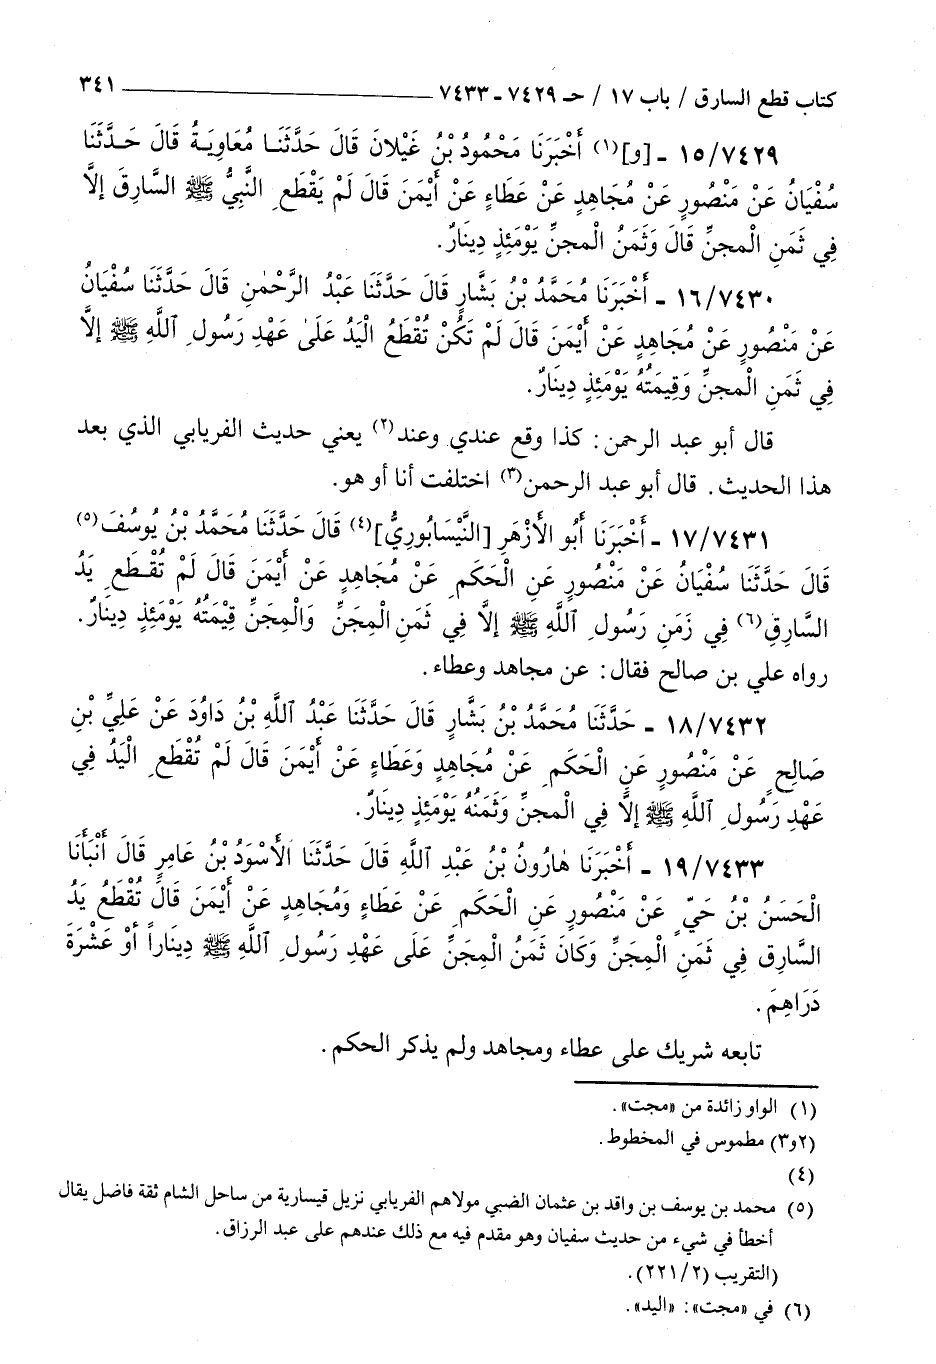 كتاب قطع السارق / باب ١٧ / حـ ٧٤٢٩ - ٧٤٣٣ ٣٤١
١٥/٧٤٢٩ - [و](١) أَخْبَرَنَا مَحْمُودُ بْنُ غَيْلانَ قَالَ حَدَّثَنَا مُعَاوِيَةُ قَالَ حَدَّثَنَا
سُفْيَانُ عَنْ مَنْصُورٍ عَنْ مُجَاهِدٍ عَنْ عَطَاءٍ عَنْ أَيْمَنَ قَالَ لَمْ يَقْطَعِ النَّبِيُّ ﷺ السَّارِقَ إلَّا
فِي ثَمَنِ الْمِجَنِّ قَالَ وَثَمَنُ الْمِجَنِّ يَوْمَئِذٍ دِينَارٌ.
١٦/٧٤٣٠ - أَخْبَرَنَا مُحَمَّدُ بْنُ بَشَّارٍ قَالَ حَدَّثَنَا عَبْدُ الرَّحْمٰنِ قَالَ حَدَّثَنَا سُفْيَانُ
عَنْ مَنْصُورٍ عَنْ مُجَاهِدٍ عَنْ أَيْمَنَ قَالَ لَمْ تَكُنْ تُقْطَعُ الْيَدُ عَلَىٰ عَهْدِ رَسُولِ اللَّهِ ﷺ إلَّا
فِي ثَمَنِ الْمِجَنِّ وَقِيمَتُهُ يَوْمَئِذٍ دِينَارٌ.
قال أبو عبد الرحمن: كذا وقع عندي وعند(٢) يعني حديث الفريابي الذي بعد
هذا الحديث. قال أبو عبد الرحمن(٣) اختلفت أنا أو هو.
١٧/٧٤٣١ - أَخْبَرَنَا أَبُو الأَزْهَرِ [النَّيْسَابُورِيُّ](٤) قَالَ حَدَّثَنَا مُحَمَّدُ بْنُ يُوسُفَ(٥)
قَالَ حَدَّثَنَا سُفْيَانُ عَنْ مَنْصُورٍ عَنِ الْحَكَمِ عَنْ مُجَاهِدٍ عَنْ أَيْمَنَ قَالَ لَمْ تُقْطَعِ يَدُ
السَّارِقِ(٦) فِي زَمَنِ رَسُولِ اللَّهِ ﷺ إلَّا فِي ثَمَنِ الْمِجَنِّ وَالْمِجَنِّ قِيْمَتُهُ يَوْمَئِذٍ دِينَارٌ.
رواه علي بن صالح فقال: عن مجاهد وعطاء.
١٨/٧٤٣٢ - حَدَّثَنَا مُحَمَّدُ بْنُ بَشَّارٍ قَالَ حَدَّثَنَا عَبْدُ اللَّهِ بْنُ دَاوُدَ عَنْ عَلِيِّ بْنِ
صَالِحٍ عَنْ مَنْصُورٍ عَنِ الْحَكَمِ عَنْ مُجَاهِدٍ وَعَطَاءٍ عَنْ أَيْمَنَ قَالَ لَمْ تُقْطَعِ الْيَدُ فِي
عَهْدِ رَسُولِ اللَّهِ ﷺ إلَّا فِي الْمِجَنِّ وَثَمَنُهُ يَوْمَئِذٍ دِينَارٌ.
١٩/٧٤٣٣ - أَخْبَرَنَا هٰارُونُ بْنُ عَبْدِ اللَّهِ قَالَ حَدَّثَنَا الأَسْوَدُ بْنُ عَامِرٍ قَالَ أَنْبَأَنَا
الْحَسَنُ بْنُ حَيٍّ عَنْ مَنْصُورٍ عَنِ الْحَكَمِ عَنْ عَطَاءٍ وَمُجَاهِدٍ عَنْ أَيْمَنَ قَالَ تُقْطَعُ يَدُ
السَّارِقِ فِي ثَمَنِ الْمِجَنِّ وَكَانَ ثَمَنُ الْمِجَنِّ عَلَى عَهْدِ رَسُولِ اللَّهِ ﷺ دِينَاراً أَوْ عَشْرَةَ
دَرَاهِمَ.
تابعه شريك على عطاء ومجاهد ولم يذكر الحكم.
(١) الواو زائدة من «مجت».
(٢و٣) مطموس في المخطوط.
(٤)
(٥) محمد بن يوسف بن واقد بن عثمان الضبي مولاهم الفريابي نزيل قيسارية من ساحل الشام ثقة فاضل يقال
أخطأ في شيء من حديث سفيان وهو مقدم فيه مع ذلك عندهم على عبد الرزاق.
(التقريب (٢/ ٢٢١).
(٦) في «مجت»: «اليد».